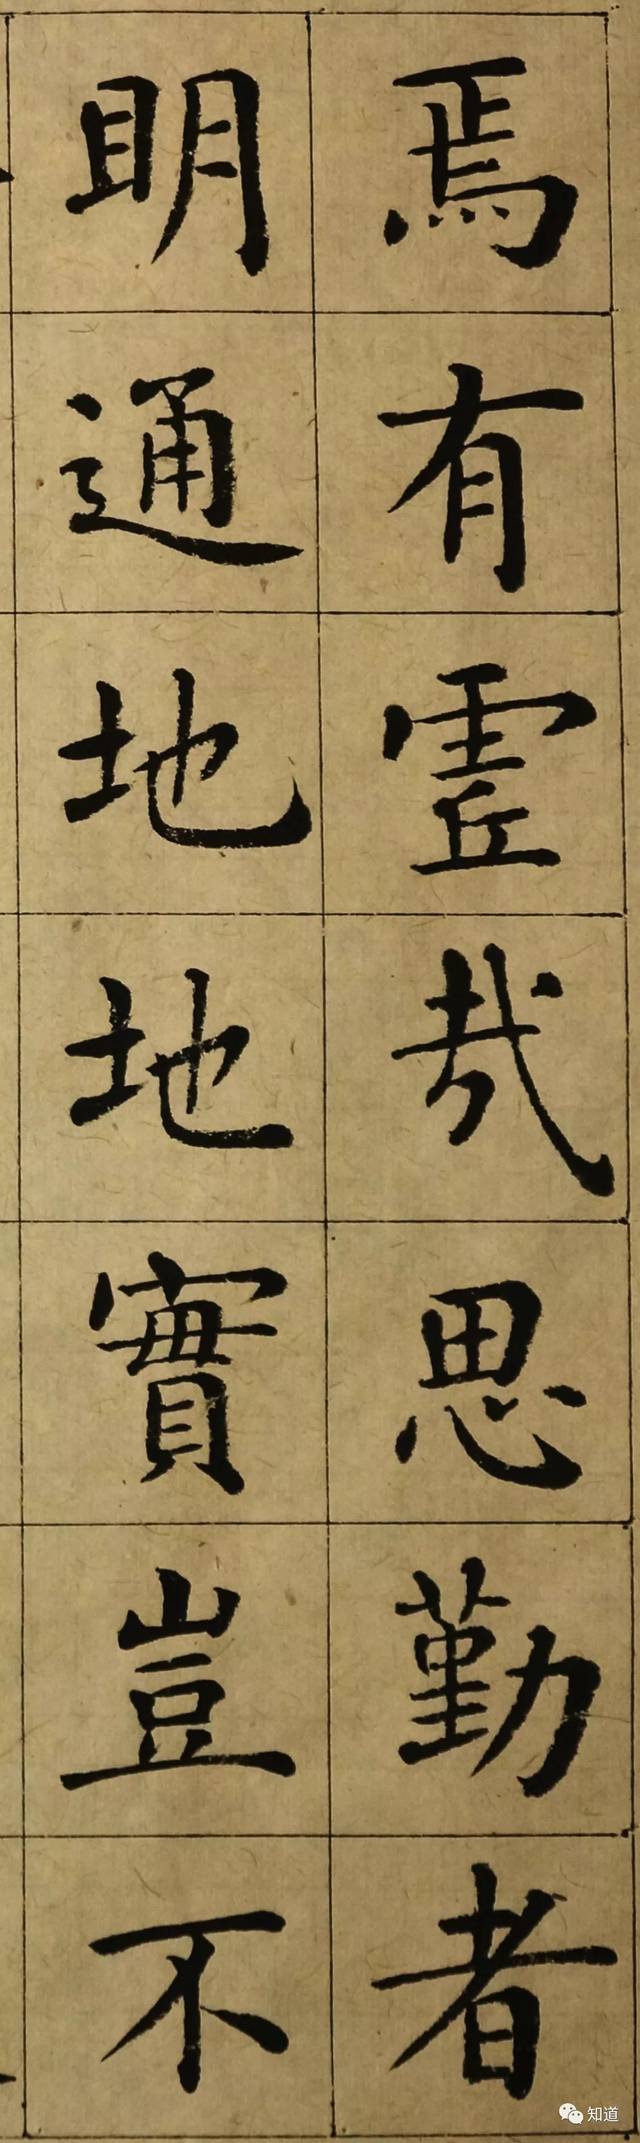 焉有哉思勤者
明通地地實豈不
知道